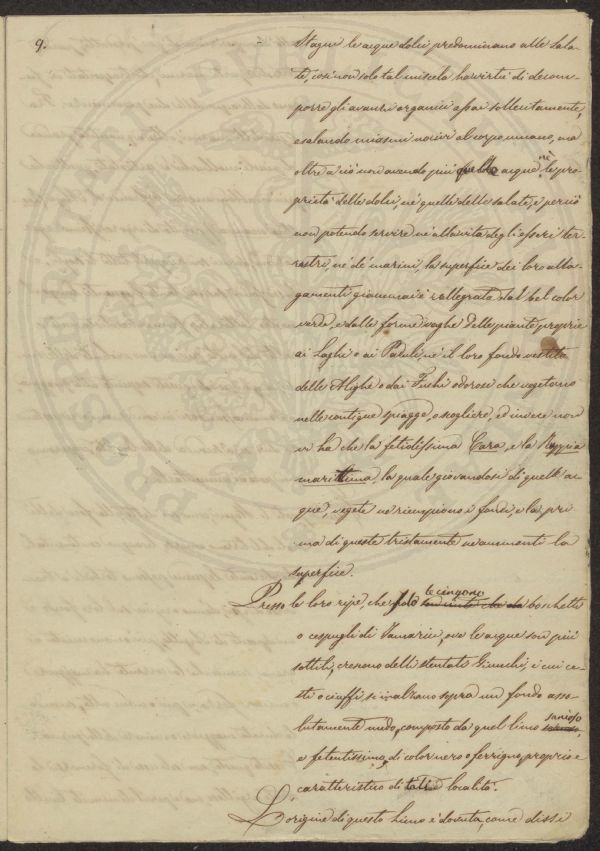 9.
Stagni le acque dolci predominano alle sala-
te, così non solo tal miscela ha virtù di decom-
porre gli avanzi organici assai sollecitamente,
esalando miasmi nocivi al corpo umano, ma
oltre a ciò non avendo più quelle acque nè le pro-
prietà delle dolci, nè quelle delle salate, e perciò
non potendo servire nè alla vita degli esseri ter-
restri, nè de' marini, la superficie dei loro alla-
gamenti giammai è rallegrata dal bel color
verde, e dalle forme vaghe delle piante proprie
ai Laghi o ai Paduli, nè il loro fondo vestito
delle Alighe o dai Fuchi odorosi che vegetano
nelle contigue spiagge, o scogliere, ed invece non
vi ha che la fetidissima Cara, e la Ruppia
marittima, la quale giovandosi di quelle ac-
que, vegete ne riempiono i fondi, e la pri-
ma di queste tristamente ne ammanti la
superficie.
Presso le loro ripe, che solo le cingono boschetti
o cespugli di Tamarici, ove le acque son più
sottili, crescono delli stentati Giunchi, i cui ce-
sti o ciuffi, si inalzano sopra un fondo asso-
lutamente nudo, composto da quel limo sanioso
e fetentissimo, di color nero o ferrigno, proprio e
caratteristico di tali località.
L'origine di questo limo è dovuta, come dissi